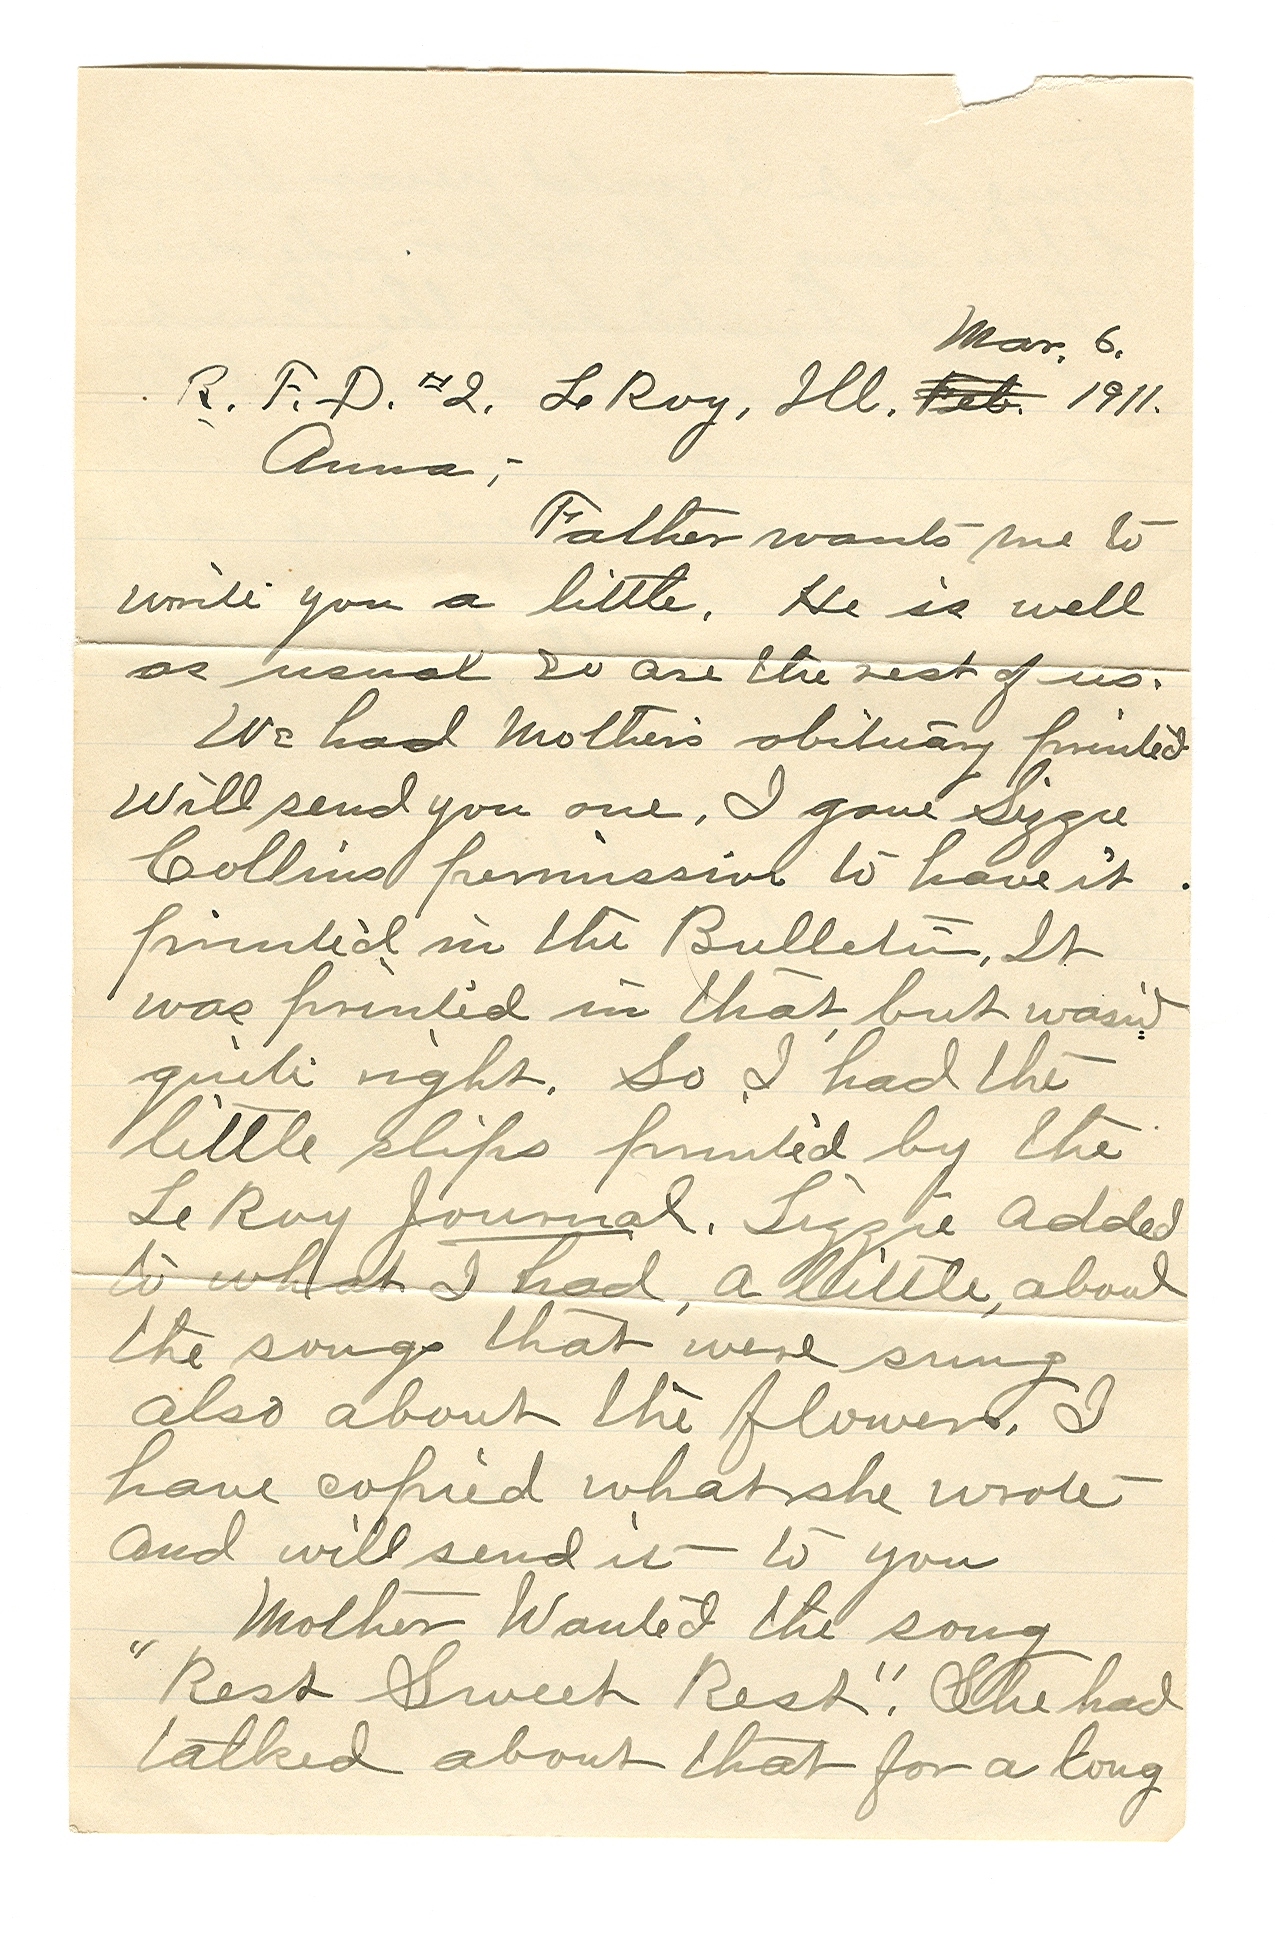 Mar. 6.
R. F. D. #2. Le Roy, Ill. Feb. 1911.
Anna,-
Father wants me to
write you a little. He is well
as usual so are the rest of us.
We had Mother's obituary printed
Will send you one. I gave Lizzie
Collins permission to have it
printed in the Bulletin. It
was printed in that, but wasn't
quite right. So I had the
little slips printed by the
Le Roy Journal. Lizzie added
to what I had, a little, about
the songs that were sung
also about the flowers. I
have copied what she wrote
and will send it to you
Mother Wanted the song
"Rest Sweet Rest". She had
talked about that for a long